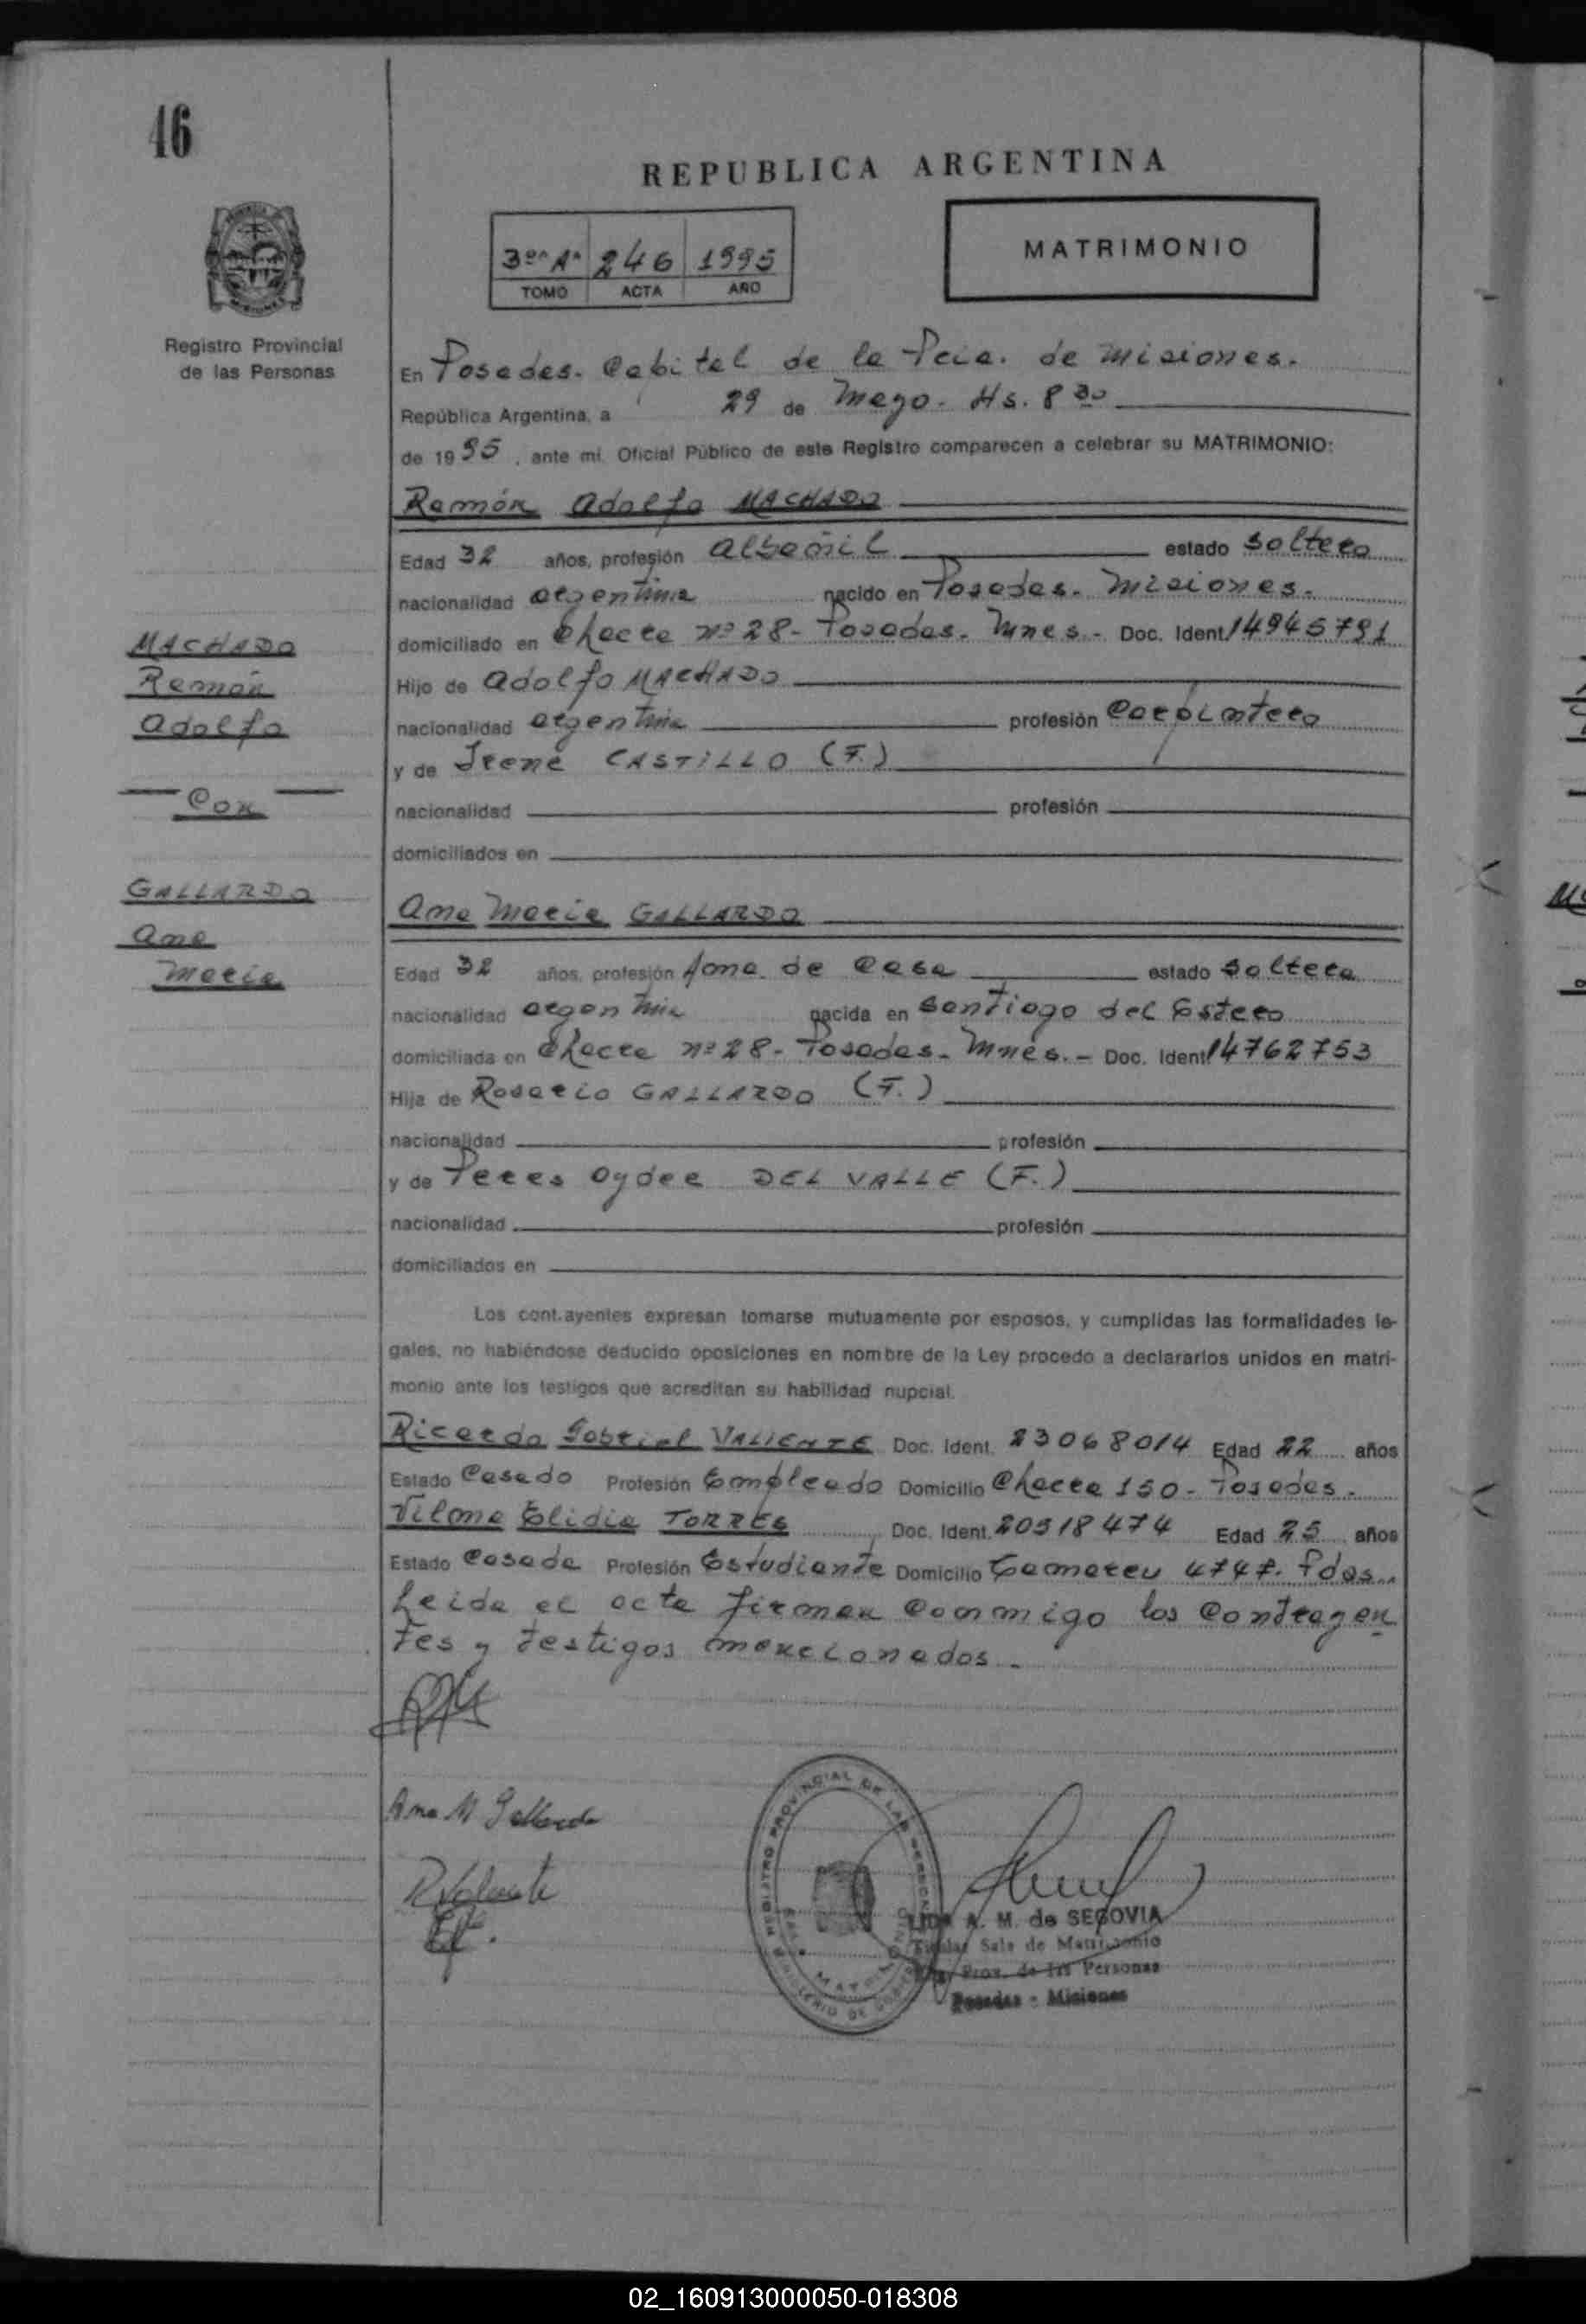 46
REPUBLICA ARGENTINA
3º "A" 246 1995
TOMO ACTA AÑO
MATRIMONIO
Registro Provincial
de las Personas
En Posadas. Capital de la Pcia. de Misiones.
República Argentina, a 29 de Mayo. Hs. 8 30
de 1995, ante mí, Oficial Público de este Registro comparecen a celebrar su MATRIMONIO:
Ramón Adolfo MACHADO
Edad 32 años, profesión Albañil estado Soltero
nacionalidad argentina nacido en Posadas. Misiones.
domiciliado en Chacra nº 28- Posadas. Mnes.- Doc. Ident. 14946791
Hijo de Adolfo MACHADO
nacionalidad argentina profesión Carpintero
y de Irene CASTILLO (F.)
nacionalidad profesión
domiciliados en
Ana Maria GALLARDO
Edad 32 años, profesión Ama de Casa estado Soltera
nacionalidad argentina nacida en Santiago del Estero
domiciliada en Chacra nº 28- Posadas- Mnes.- Doc. Ident. 14762753
Hija de Rosario GALLARDO (F.)
nacionalidad profesión
y de Peres Oydee DEL VALLE (F.)
nacionalidad profesión
domiciliados en
MACHADO
Ramón
Adolfo
Con
GALLARDO
Ana
Maria
Los cont.ayentes expresan tomarse mutuamente por esposos, y cumplidas las formalidades le-
gales, no habiéndose deducido oposiciones en nombre de la Ley procedo a declararlos unidos en matri-
monio ante los testigos que acreditan su habilidad nupcial.
Ricardo Gabriel VALIENTE Doc. Ident. 23068014 Edad 22 años
Estado Casado Profesión Empleado Domicilio Chacra 150- Posadas.
Vilma Elidia TORRES Doc. Ident. 20518474 Edad 25 años
Estado Casada Profesión Estudiante Domicilio 4747. Pdas.
Leida el acta firman conmigo los contrayen
tes y testigos mencionados.-
Ana M Gallardo
REGISTRO PROVINCIAL DE LAS PERSONAS
MINISTERIO DE GOBIERNO
A. M. de SEGOVIA
Titular Sala de Matrimonio
Prov. de las Personas
Posadas - Misiones
02_160913000050-018308